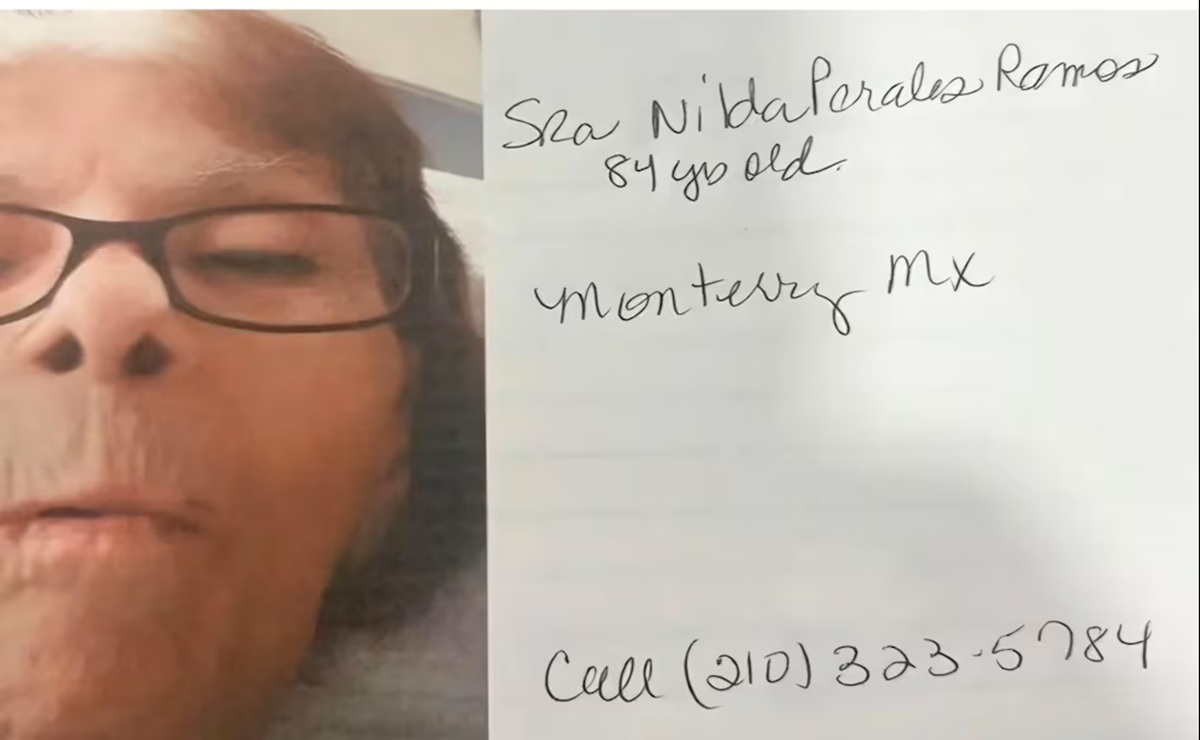 Sra Nilda Perales Ramos
84 yrs old.
Monterry Mx
Call (210) 323-5784